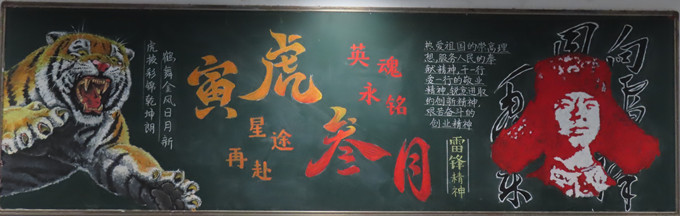 鹤舞金风日月新
虎披彩锦乾坤朗
寅虎
星途
再赴
叁月
英魂
永铭
热爱祖国的崇高理
想,服务人民的奉
献精神,干一行
爱一行的敬业
精神,锐意进取
的创新精神,
艰苦奋斗的
创业精神
雷锋
精神
向